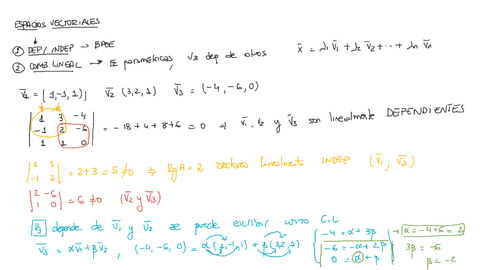 ESPACIOS VECTORIALES
① DEP/INDEP → BASE
② COMB LINEAL → Ec paramétricas, v3 dep de otros x̄ = λ1 v̄1 + λ2 v̄2 + ... + λn v̄n
v̄1 = (1,-1,1); v̄2 (3,2,1) v̄3 = (-4,-6,0)
| 1 3 -4 |
| -1 2 -6 | = -18+4+8+6 = 0 ⇒ v̄1, v2 y v̄3 son linealmente DEPENDIENTES
| 1 1 0 |
| 1 3 |
| -1 2 | = 2+3 = 5 ≠ 0 ⇒ rgA = 2 vectores linealmente INDEP (v̄1; v̄2)
| 2 -6 |
| 1 0 | = 6 ≠ 0 (v̄2 y v̄3)
v̄3 depende de v̄1 y v̄2 se puede escribir como C.L
v̄3 = αv̄1 + βv̄2, (-4,-6,0) = α(1,-1,1) + β(3,2,1)
-4 = α+3β
-6 = -α+2β
0 = α+β
α = -4+6 = 2
3β = -6
β = -2